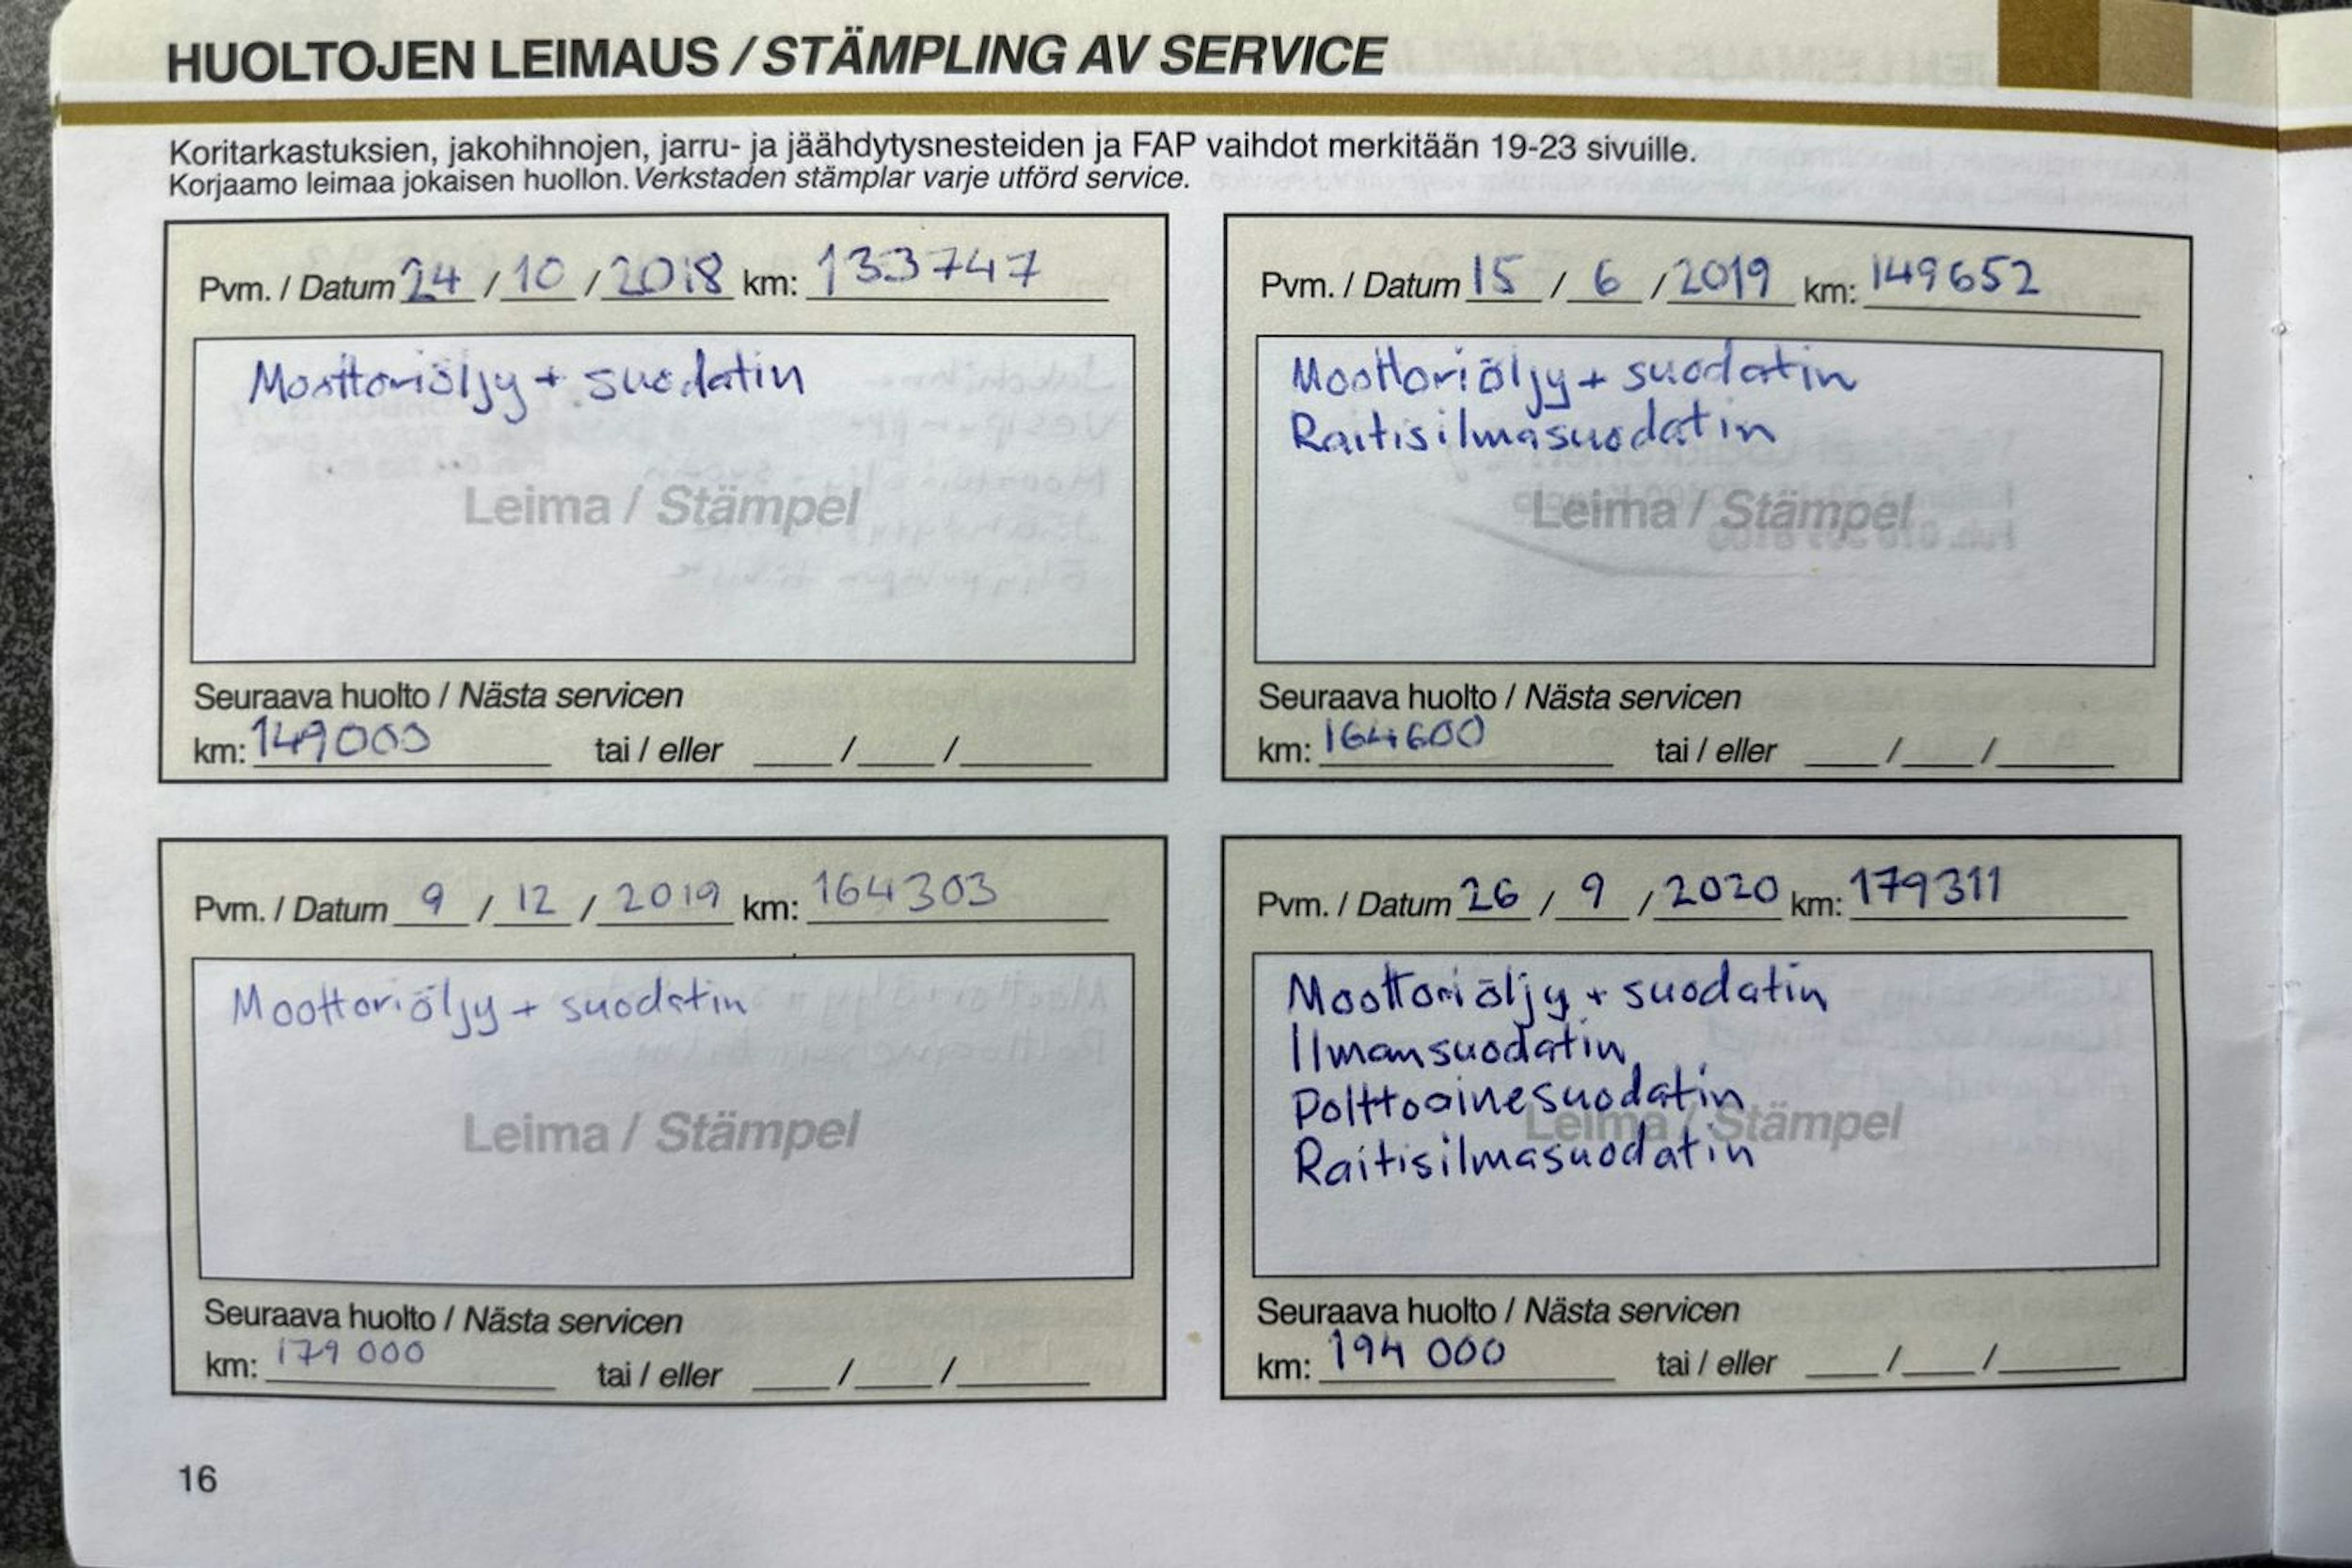 HUOLTOJEN LEIMAUS / STÄMPLING AV SERVICE
Koritarkastuksien, jakohihnojen, jarru- ja jäähdytysnesteiden ja FAP vaihdot merkitään 19-23 sivuille.
Korjaamo leimaa jokaisen huollon. Verkstaden stämplar varje utförd service.
Pvm. / Datum 24 / 10 / 2018 km: 133747
Moottoriöljy + suodatin
Leima / Stämpel
Seuraava huolto / Nästa servicen
km: 149000 tai / eller ___/___/___
Pvm. / Datum 15 / 6 / 2019 km: 149652
Moottoriöljy + suodatin
Raitisilmasuodatin
Leima / Stämpel
Seuraava huolto / Nästa servicen
km: 164600 tai / eller ___/___/___
Pvm. / Datum 9 / 12 / 2019 km: 164303
Moottoriöljy + suodatin
Leima / Stämpel
Seuraava huolto / Nästa servicen
km: 179 000 tai / eller ___/___/___
Pvm. / Datum 26 / 9 / 2020 km: 179311
Moottoriöljy + suodatin
Ilmansuodatin
Polttoainesuodatin
Leima / Stämpel
Raitisilmasuodatin
Seuraava huolto / Nästa servicen
km: 194 000 tai / eller ___/___/___
16